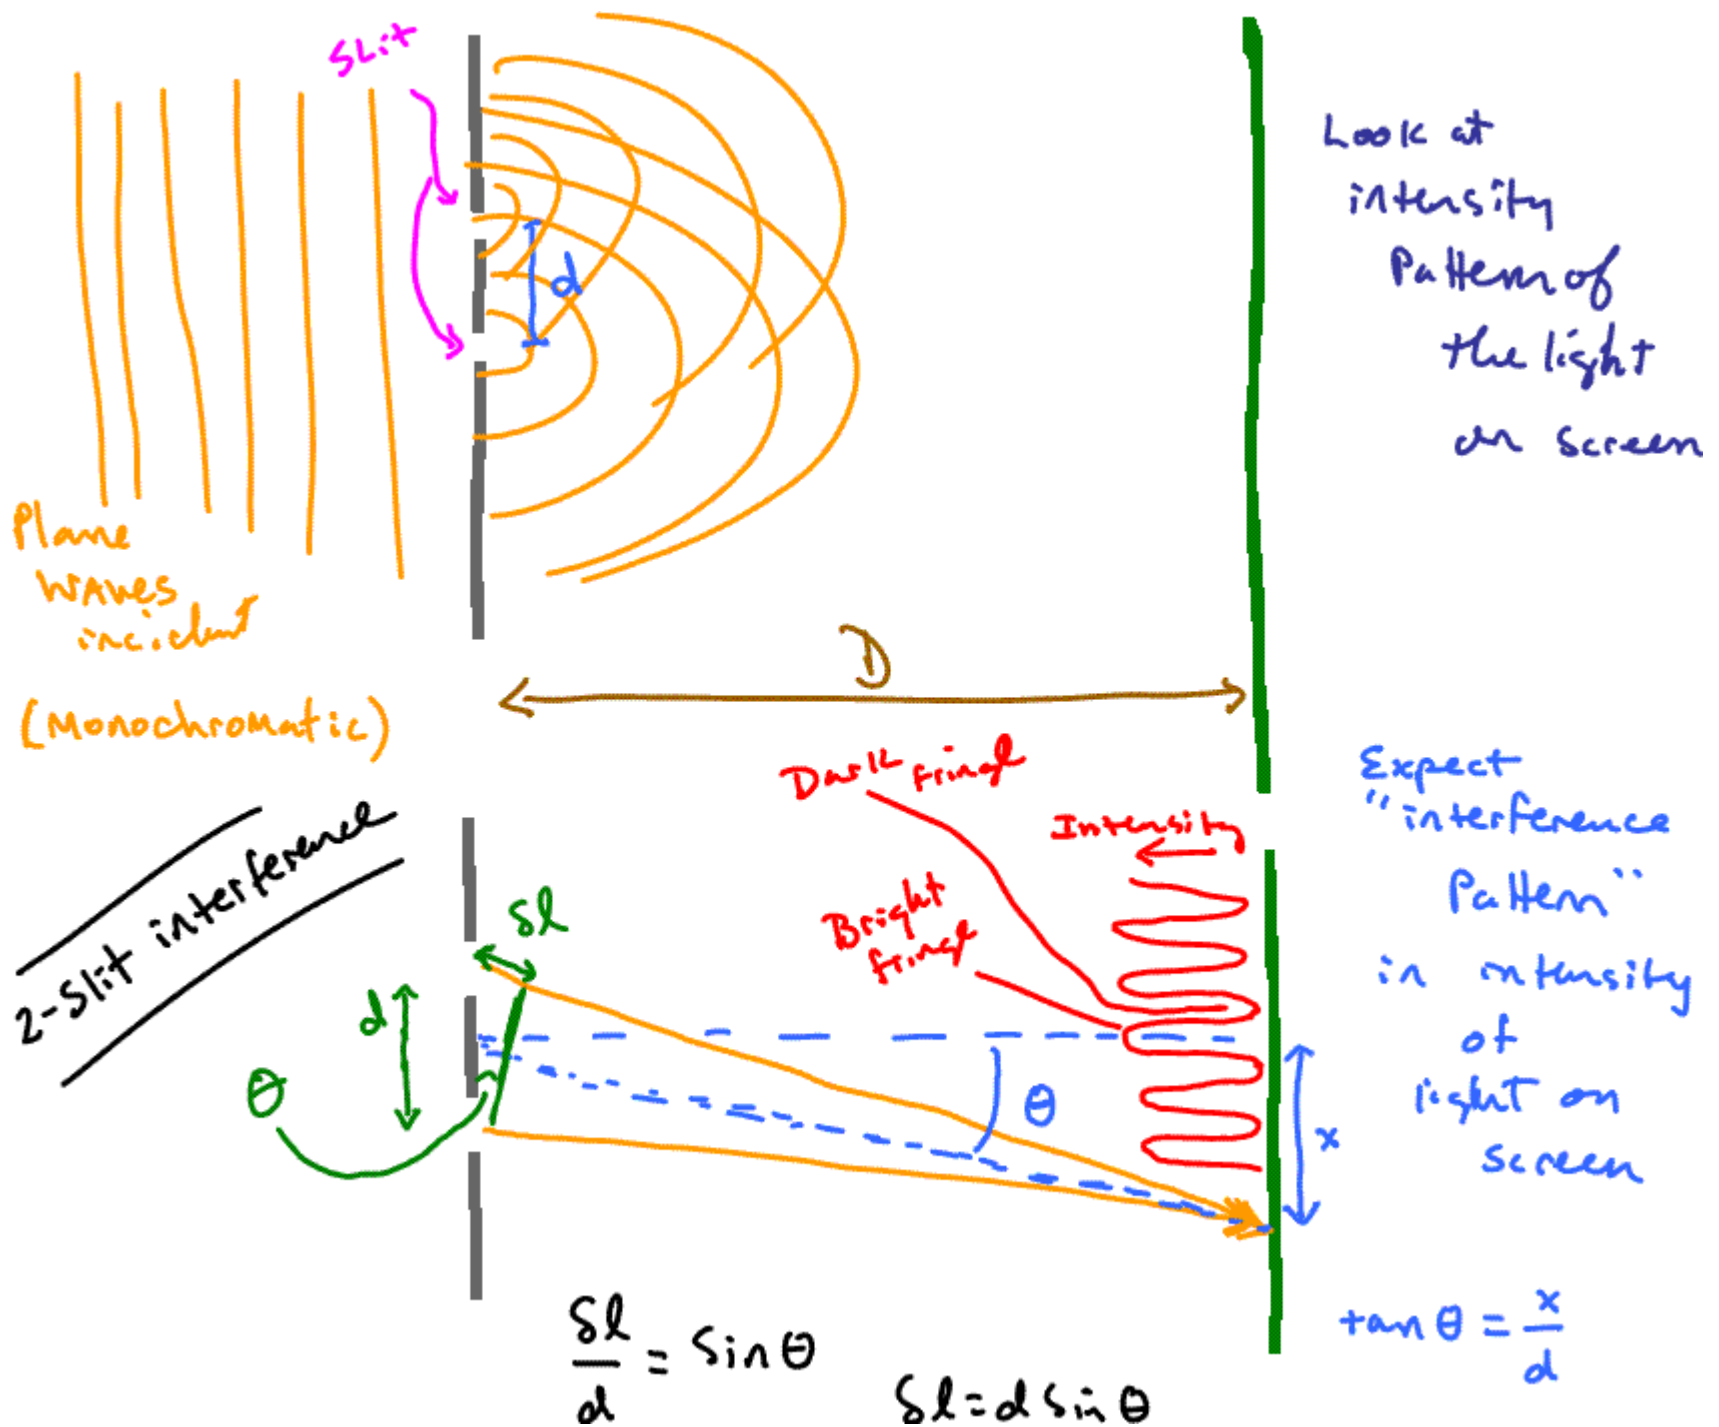 SLit
d
Look at
intensity
Pattern of
the light
on screen
Plane
WAves
incident
(Monochromatic)
D
2-Slit interference
Dark fringe
Intensity
Bright
fringe
Expect
"interference
Pattern"
in intensity
of
light on
screen
δl
d
θ
θ
x
δl/d = Sinθ
δl = d Sin θ
tan θ = x/d